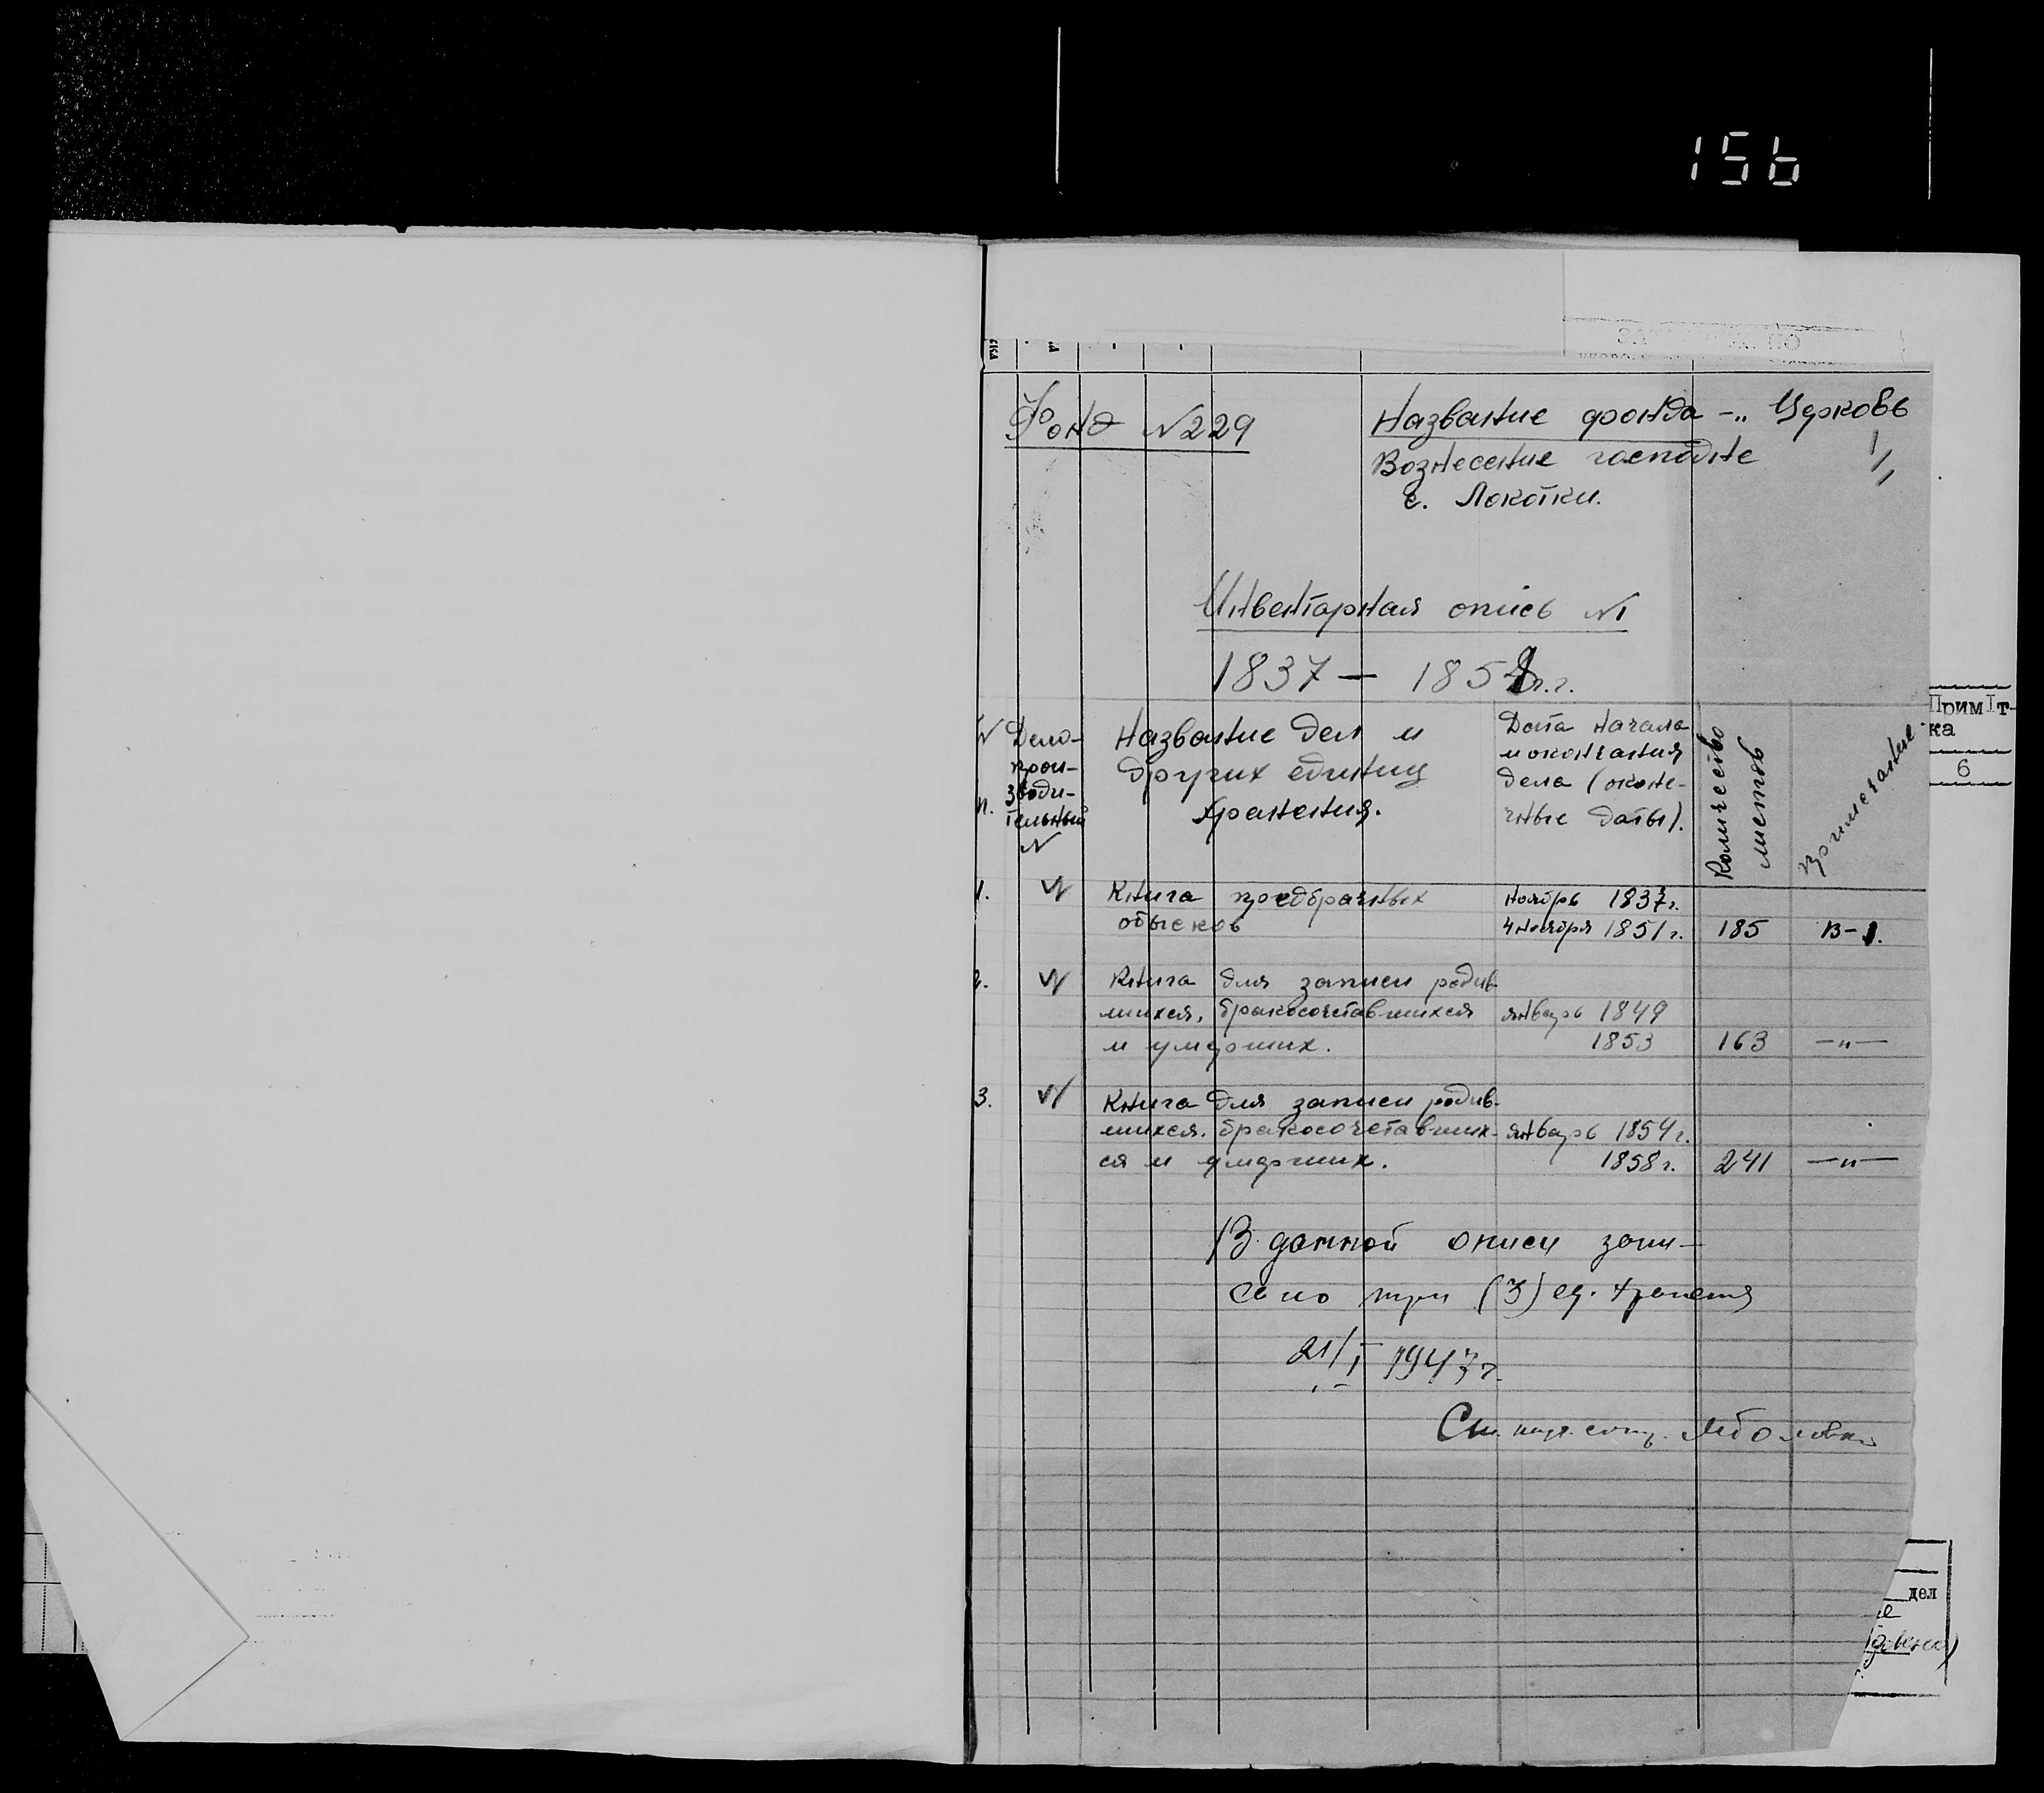 156
Фонд №229
Название фонда – „Церковь
Вознесение господне
с. Локотки.
Инвентарная опись №1
1837 — 1858 г.г.
Прим Іт-
ка
6
№ Дело-
прои-
зводи-
тельный
№
п.
Название дел и
других единиц
хранения.
Дата начала
и окончания
дела (коне-
чные даты).
Количество
листов
примечание
1. Книга предбрачных ноябрь 1837г.
обысков 4 ноября 1851г. 185 В-1.
2. Книга для записи родив-
шихся, бракосочетавшихся январь 1849
и умерших. 1853 163 —„—
3. Книга для записи родив-
шихся. бракосочетавших- январь 1854г.
ся и умерших. 1858г. 241 —„—
В данной описи запи-
сано три (3) ед. хранения
21/I 1947г.
Ст. науч. сотр.
дел